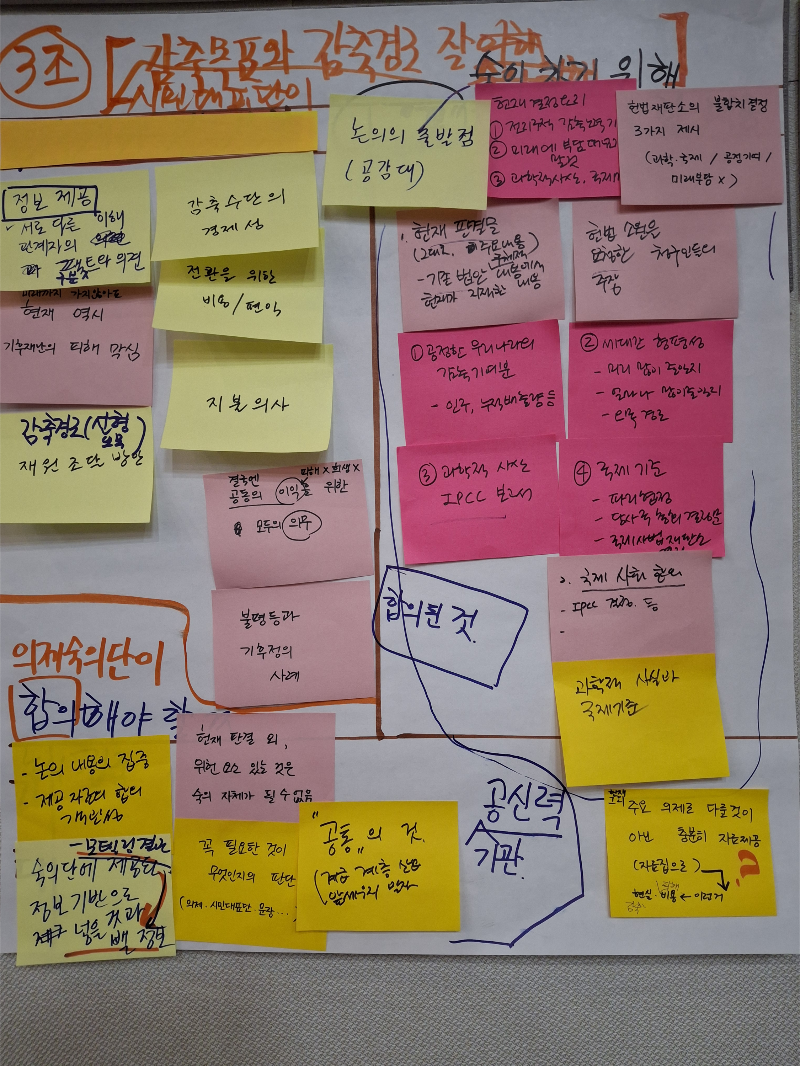 3조
감축목표와 감축경로 잘 이해
시민대표단이
숙의 하기 위해
논의의 출발점
(공감대)
헌재 결정요지
① 전지구적 감축노력 기
② 미래에 부담
③ 과학적사실, 국제
헌법재판소의 불합치결정
3가지 제시
(과학·국제 / 공정기여 /
미래부담 X)
정보 제공
- 서로 다른 이해
관계자의
팩트와 의견
구분
감축 수단의
경제성
전환을 위한
비용/편익
현재 역시
기후재난의 피해 막심
지불의사
감축경로(선형
볼록)
재원 조달 방안
결국엔 피해 X 희생 X
공동의 이익을 위반
모두의 의무
불평등과
기후정의
사례
1. 헌재 판결문
(그대로, 주요내용)
구체적
- 기존 법안 내용에서
헌재가 지적한 내용
헌법 소원은
청구인들의
주장
① 공정한 우리나라의
감축기여분
- 인구, 누적배출량 등
② 세대간 형평성
- 미리 많이 줄일지
- 얼마나 많이 줄일지
- 감축 경로
③ 과학적 사실
IPCC 보고서
④ 국제 기준
- 파리협정
- 당사국 총회 결정문
- 국제사법재판소
2. 국제 사회 합의
- IPCC 결정. 등
-
과학적 사실과
국제기준
합의된 것.
의제숙의단이
합의해야 할
- 논의 내용의 집중
- 제공 자료의 합의
객관성
- 모델링 결과
숙의단에 제공된
정보기반으로
넣을 것과
뺄 정보
헌재 판결 외,
위헌 요소 있는 것은
숙의 자체가 될 수 없음
꼭 필요한 것이
무엇인지의 판단
(의제·시민대표단·운영...)
"공통"의 것.
(각층 계층 산업
앞세우지 말자)
공신력
기관.
주요 의제로 다룰것이
아닌 충분히 자료제공
(자료집으로)
현실 비용 ← 이런거